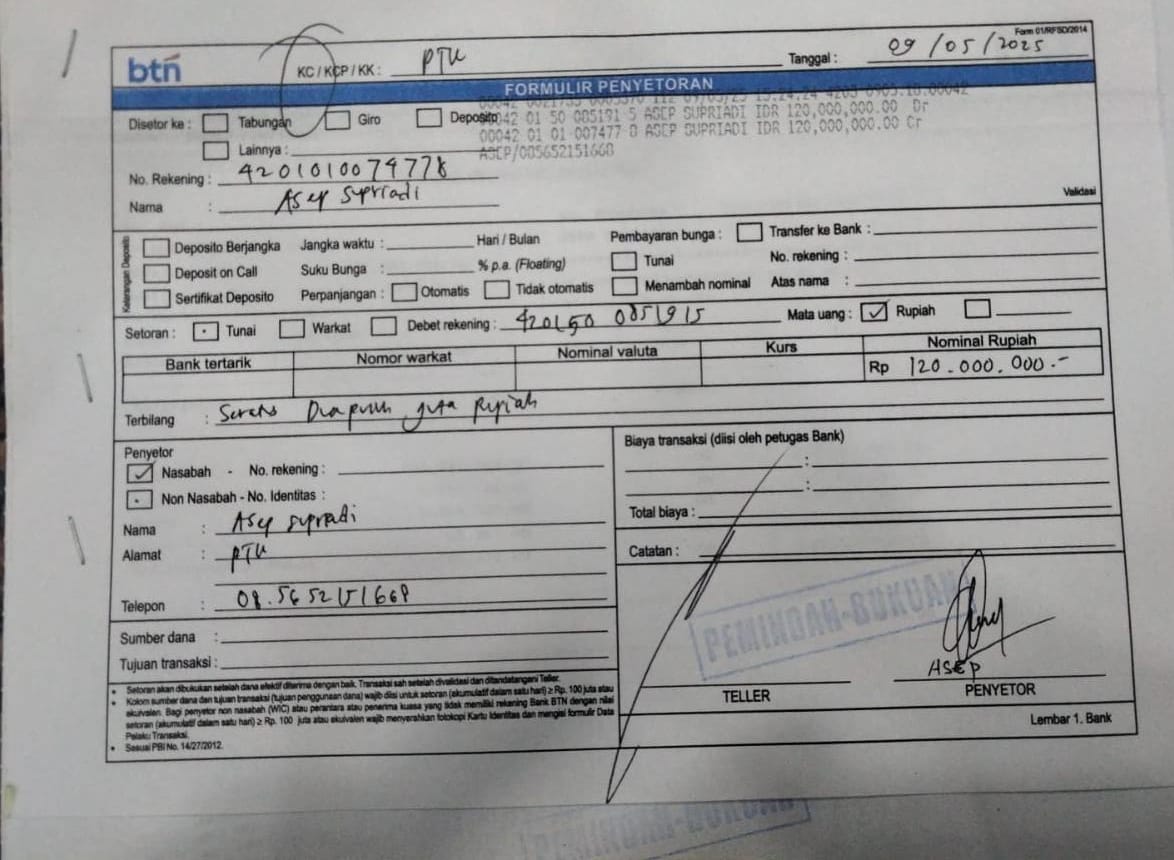 Form 01/RFSD/2014
btn KC / KCP / KK : PTK Tanggal : 09/05/2025
FORMULIR PENYETORAN
Disetor ke : Tabungan Giro Deposito
42 01 50 005191 5 ASEP SUPRIADI IDR 120,000,000.00 Dr
00042 01 01 007477 8 ASEP SUPRIADI IDR 120,000,000.00 Cr
Lainnya :
ASEP/085652151668
No. Rekening : 4201010074778
Nama : Asep Supriadi
Validasi
Keterangan Deposito
Deposito Berjangka Jangka waktu : Hari / Bulan Pembayaran bunga : Transfer ke Bank :
Deposit on Call Suku Bunga : % p.a. (Floating) Tunai No. rekening :
Sertifikat Deposito Perpanjangan : Otomatis Tidak otomatis Menambah nominal Atas nama :
Setoran : Tunai Warkat Debet rekening : 420150 0851915 Mata uang : ✓ Rupiah
Bank tertarik Nomor warkat Nominal valuta Kurs Nominal Rupiah
Rp 120.000.000.-
Terbilang : Seratus Dua puluh juta Rupiah
Penyetor
✓ Nasabah - No. rekening :
Non Nasabah - No. Identitas :
Nama : Asep Supriadi
Alamat : PTK
Telepon : 08.5652151668
Sumber dana :
Tujuan transaksi :
Biaya transaksi (diisi oleh petugas Bank)
:
:
Total biaya :
Catatan :
PEMINDAH-BUKUAN
ASEP
TELLER PENYETOR
Lembar 1. Bank
• Setoran akan dibukukan setelah dana efektif diterima dengan baik. Transaksi sah setelah divalidasi dan ditandatangani Teller.
• Kolom sumber dana dan tujuan transaksi (tujuan penggunaan dana) wajib diisi untuk setoran (akumulatif dalam satu hari) ≥ Rp. 100 juta atau
ekuivalen. Bagi penyetor non nasabah (WIC) atau perantara atau penerima kuasa yang tidak memiliki rekening Bank BTN dengan nilai
setoran (akumulatif dalam satu hari) ≥ Rp. 100 juta atau ekuivalen wajib menyerahkan fotokopi Kartu Identitas dan mengisi formulir Data
Pelaku Transaksi.
• Sesuai PBI No. 14/27/2012.
PEMINDAH-BUKUAN